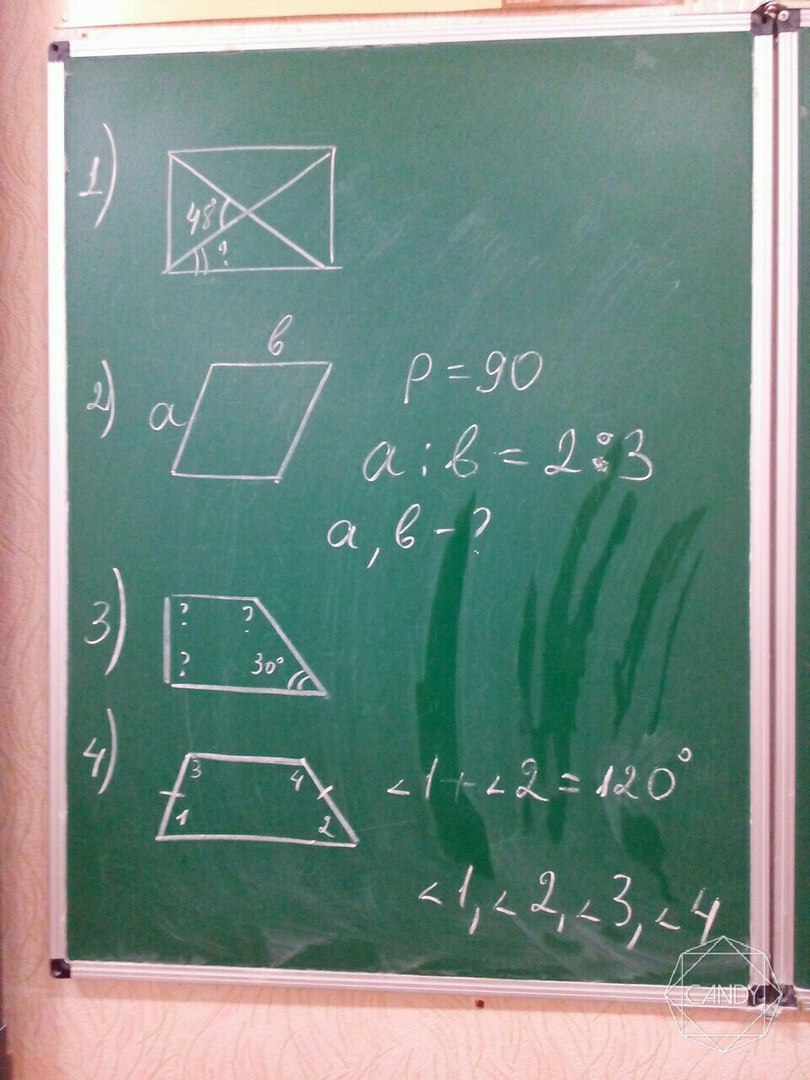 1)
48°
?
2)
a
в
P = 90
a : в = 2 : 3
a, в - ?
3)
? ?
? 30°
4)
3 4
1 2
<1 + <2 = 120°
<1, <2, <3, <4
CANDY